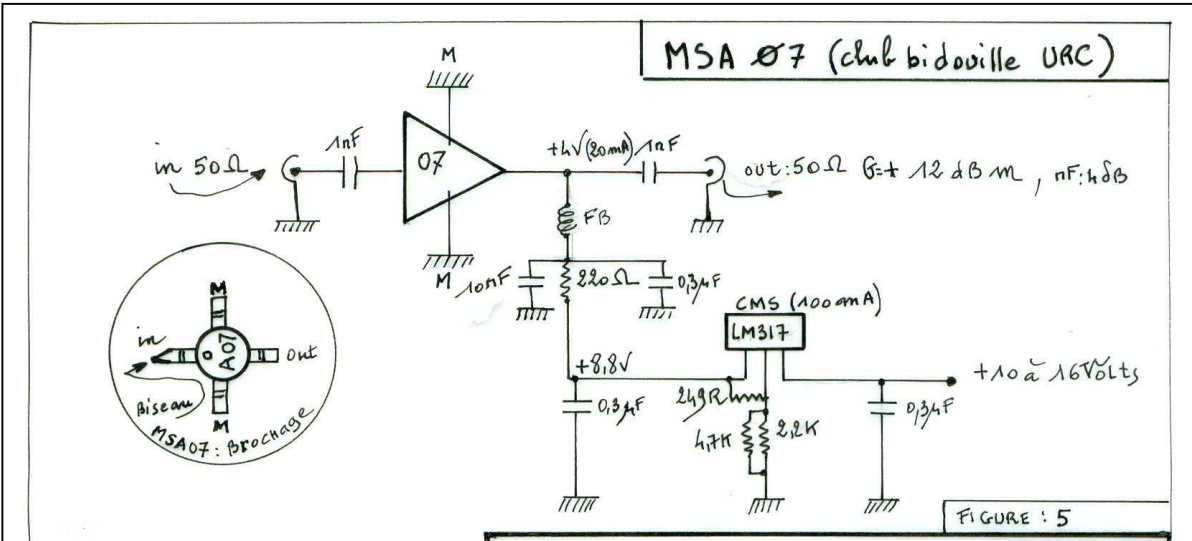 MSA Ø7 (club bidouille URC)
M
1nF
in 50Ω
07
+4V(20mA) 1nF
out:50Ω G=+ 12 dB m , nF:4dB
FB
M
10nF
220Ω
0,3µF
CMS (100mA)
LM317
+8,8V
+10 à 16Volts
0,3µF
249R
4,7K
2,2K
0,3µF
M
in
A07
Out
Biseau
M
MSA07: Brochage
FIGURE : 5